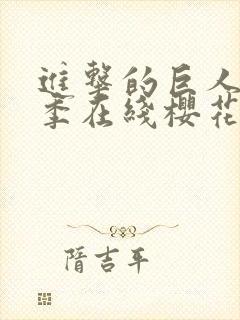 進擊的巨人
季在綫櫻花
隋吉平